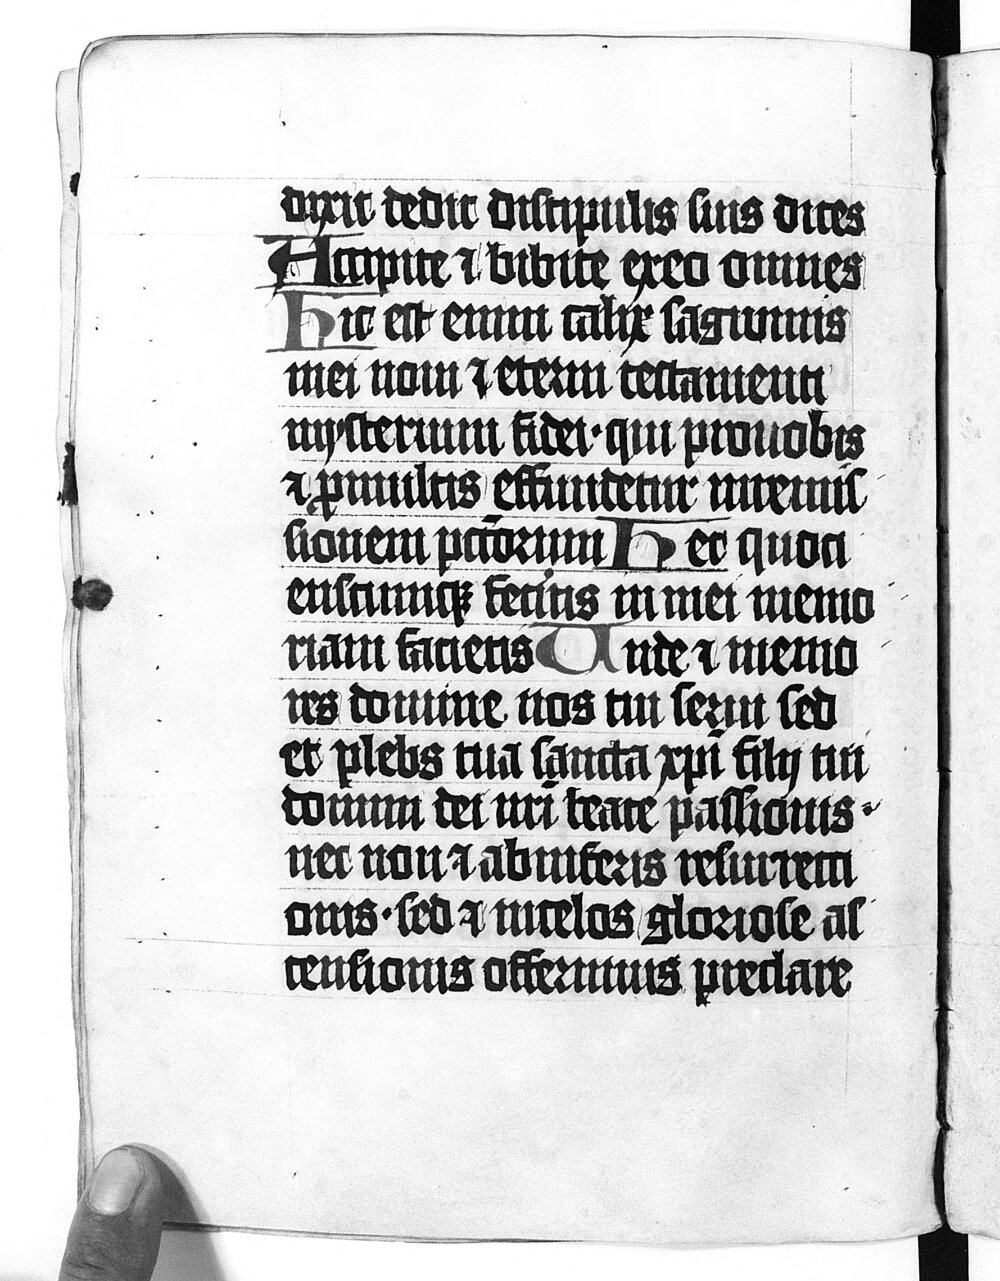 dixit dedit discipulis suis dices
Accipite ⁊ bibite exeo omnes
Hic est enim calix sāguinis
mei noui ⁊ eterni testamenti
mysterium fidei · qui prouobis
⁊ ꝓmultis effundetur inremiſ
sionem pctōrum Hec quoci
enscumqꝫ fecitis in mei memo
riam facietis Unde ⁊ memo
res domine nos tui serui sed
et plebs tua sancta xpī filij tui
domini dei nrī beate passionis ·
nec non ⁊ abinferis resurrecti
onis · sed ⁊ incelos gloriose aſ
censionis offerimus preclare